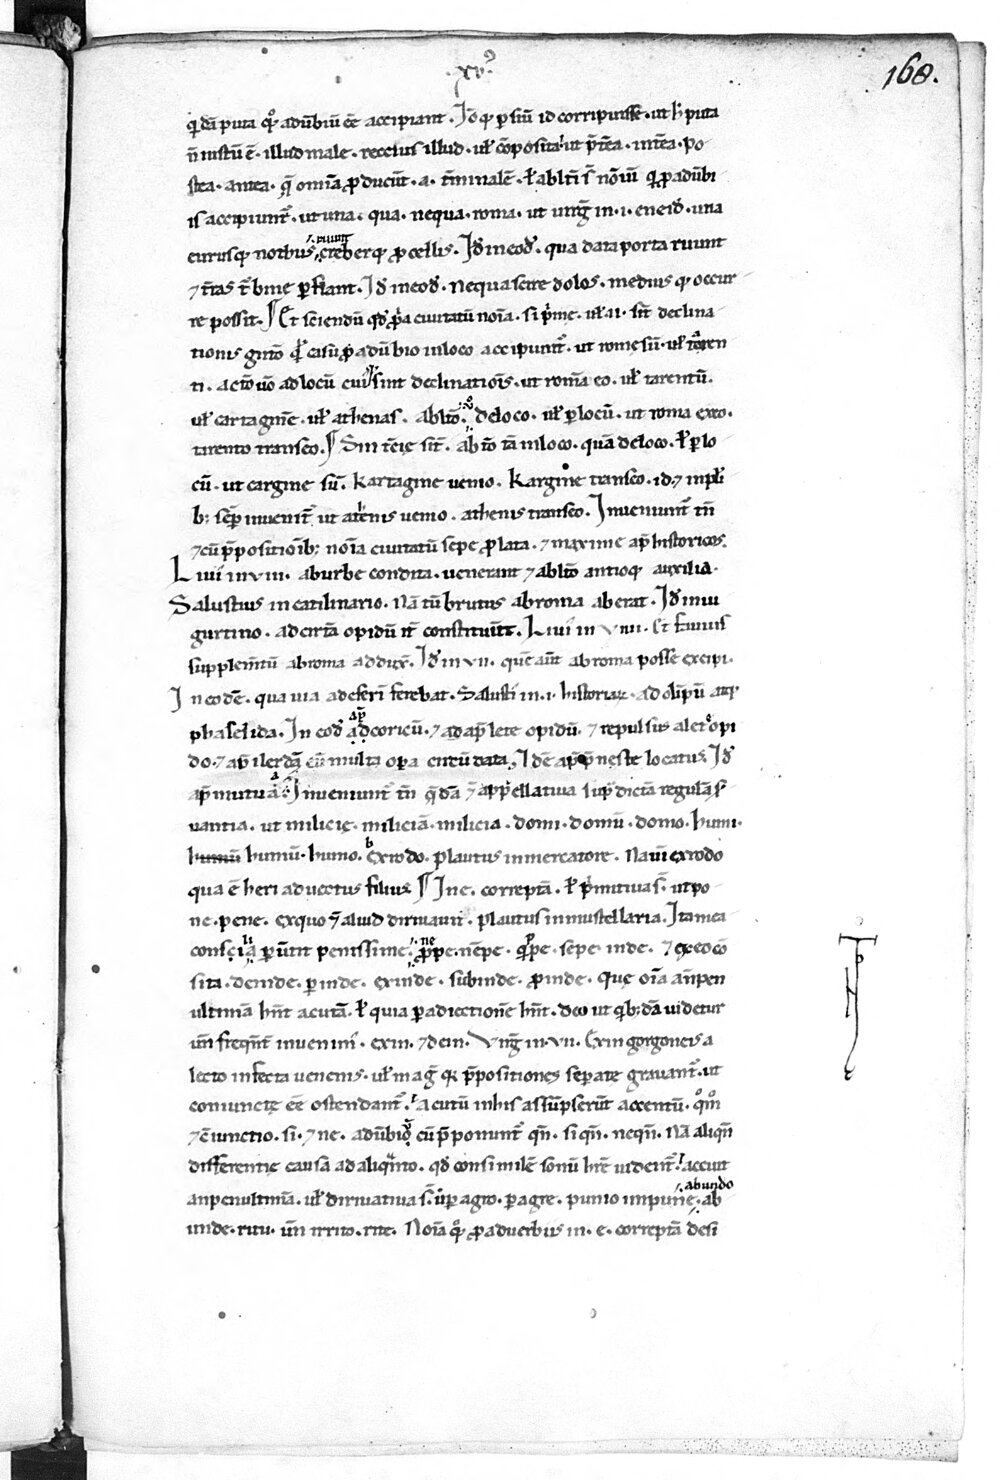 .xv.
168.
q̄dā puta qͦ adūbiū ēē accipiant. Iō qͥ psiū id corripuisse. ut h puta
n̄ iustū ē. illud male. rectius illud. uł cōposita ut p̄tēa. intēa. po
stea. antea. q̄ om̄ia producūt. a. t̄minalē. ł ablt̄i s̄ noīū q̄ p adūbi
is accipiunt̄. ut una. qua. nequa. roma. ut uirḡ in .i. eneid̄. una
eurusq; nothus, ruunt creberq; procellis. Id̄ in eod̄. qua data porta ruunt
⁊ t̄ras t̄bine perflant. Id̄ in eod̄. Nequa scire dolos. mediusq; occur
re possit. ¶ Et sciendū qd̄ p̄pa ciuitatū noīa. si p̄me. uł .ii. sūt declina
tionis gn̄to casu p adūbio in loco accipiunt̄. ut rome sū. uł taren
ti. actō uō ad locū cuiꝰ sint declinatiōis. ut romā eo. uł tarentū.
uł cartaginē. uł athenas. ablt̄o. uͦ de loco. uł p locū. ut roma exeo.
tarento transeo. ¶ Sin t̄cię sūt. abt̄o tā in loco. quā de loco. ł p lo
cū. ut cargine sū. kartagine uenio. kargine transeo. id ⁊ in pł
b; semp inuenit̄ ut athenis uenio. athenis transeo. Inueniunt̄ tn̄
⁊ cū p̄positiōib; noīa ciuitatū sepe prolata. ⁊ maxime ap̄ historicos.
Liui in viii. ab urbe condita. uenerant ⁊ ablt̄o antioq; auxilia.
Salustius in catilinario. Nā tū brutus ab roma aberat. Id̄ in iu
gurtino. ad cirtā opidū it̄ constituūt. Liui in viiii. Et Ennius
supplem̄tū ab roma adduxē. Id̄ in vii. quē aūt ab roma posse excipi.
In eodē. qua uia ad eferi ferebat. Salusti in .i. historiaꝝ. ad olīpū atq;
phaselida. In eod̄ ap̄ ad coricū. ⁊ ad ap̄ lete opidū. ⁊ repulsus a leto opi
do. ⁊ ap̄ ilerdā cū multa opera circūdata, Idē ap̄ p̄neste locatus. Id̄
ap̄ mutuā. Inueniunt̄ tn̄ q̄dā ⁊ appellatiua sup̄dictā regulā s̄
uantia. ut milicię. miliciā. milicia. domi. domū. domo. humi.
humū humū. humo. Ex rodo. plautus in mercatore. Naui ex rodo
qua ē heri aduectus filius. ¶ In e. correptā. ł p̄mitiua s̄. ut po
ne. pene. ex quo ⁊ aliud diriuauit. plautus in mustellaria. Ita mea
consilia perūt penissime. prope. nēpe. q̄ppe. sepe. inde. ⁊ ex eo cō
sita. deinde. pinde. exinde. subinde. proinde. quę oīa an̄pen
ultimā hn̄t acutā. ł quia p adiectionē hn̄t. de ut q̄b;dā uidetur
un̄ freqn̄t inueniri. exin. ⁊ dein. Virḡ in .vii. Exin gorgoneis a
lecto infecta uenenis. uł maḡ q; p̄positiones separate grauant̄. ut
coniunctę eē ostendant̄. acutū in his assūpserūt accentū. qͦm̄
⁊ c̄iunctio. si. ⁊ ne. adūbiis cū p̄ponunt̄ qn̄. siqn̄. neqn̄. Nā aliqn̄
differentie causa ad aliqn̄to. qd̄ consimilē sonū hr̄e uident̄. acuit
anpenultimā. uł diriuatiua s̄. ut p agro. peragre. punio impune. ab abundo
unde. ritu. un̄ irrito. rite. Noīa qͦ pro aduerbiis in .e. correptā desi